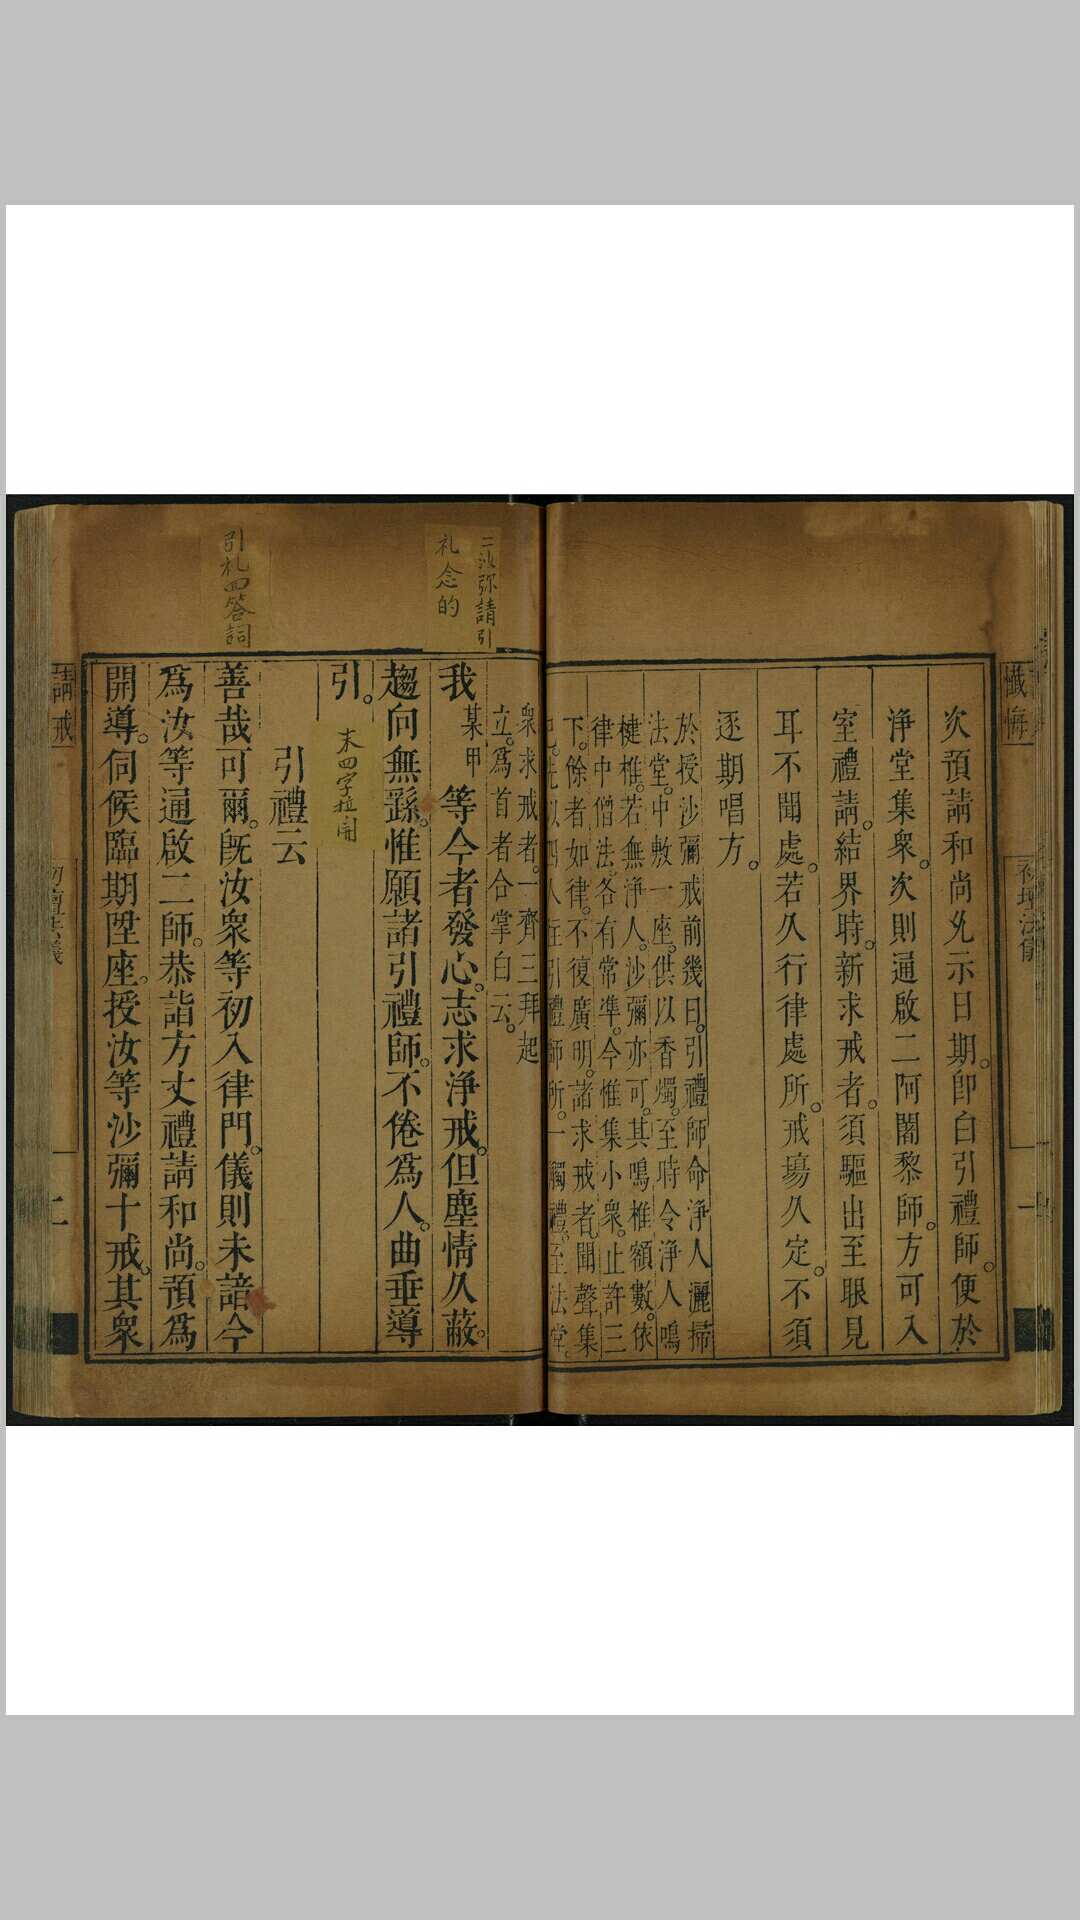 懺悔
次預請和尚允示日期。即白引禮師。便於
淨堂集衆。次則通啟二阿闍黎師。方可入
室禮請。結界時。新求戒者。須驅出至眼見
耳不聞處。若久行律處所。戒場久定。不須
逐期唱方。
於授沙彌戒前幾日。引禮師命淨人灑掃
法堂。中敷一座。供以香燭。至時令淨人鳴
楗椎。若無淨人。沙彌亦可。其鳴椎額數。依
律中僧法。各有常準。今惟集小衆。止許三
下。餘者如律。不復廣明。諸求戒者。聞聲集
四人在引禮師所。一觸禮。至法堂。
衆求戒者。一齊三拜起
立。爲首者合掌白云。
三沙弥請引
礼念的
我某甲等今者發心。志求淨戒。但塵情久蔽。
趨向無繇。惟願諸引禮師。不倦爲人。曲垂導
引。
末四字拉開
引禮云
引礼四答詞
善哉可爾。既汝衆等初入律門。儀則未諳今
爲汝等通啟二師。恭詣方丈禮請和尚。預爲
開導。伺候臨期陞座。授汝等沙彌十戒。其衆
請戒
二